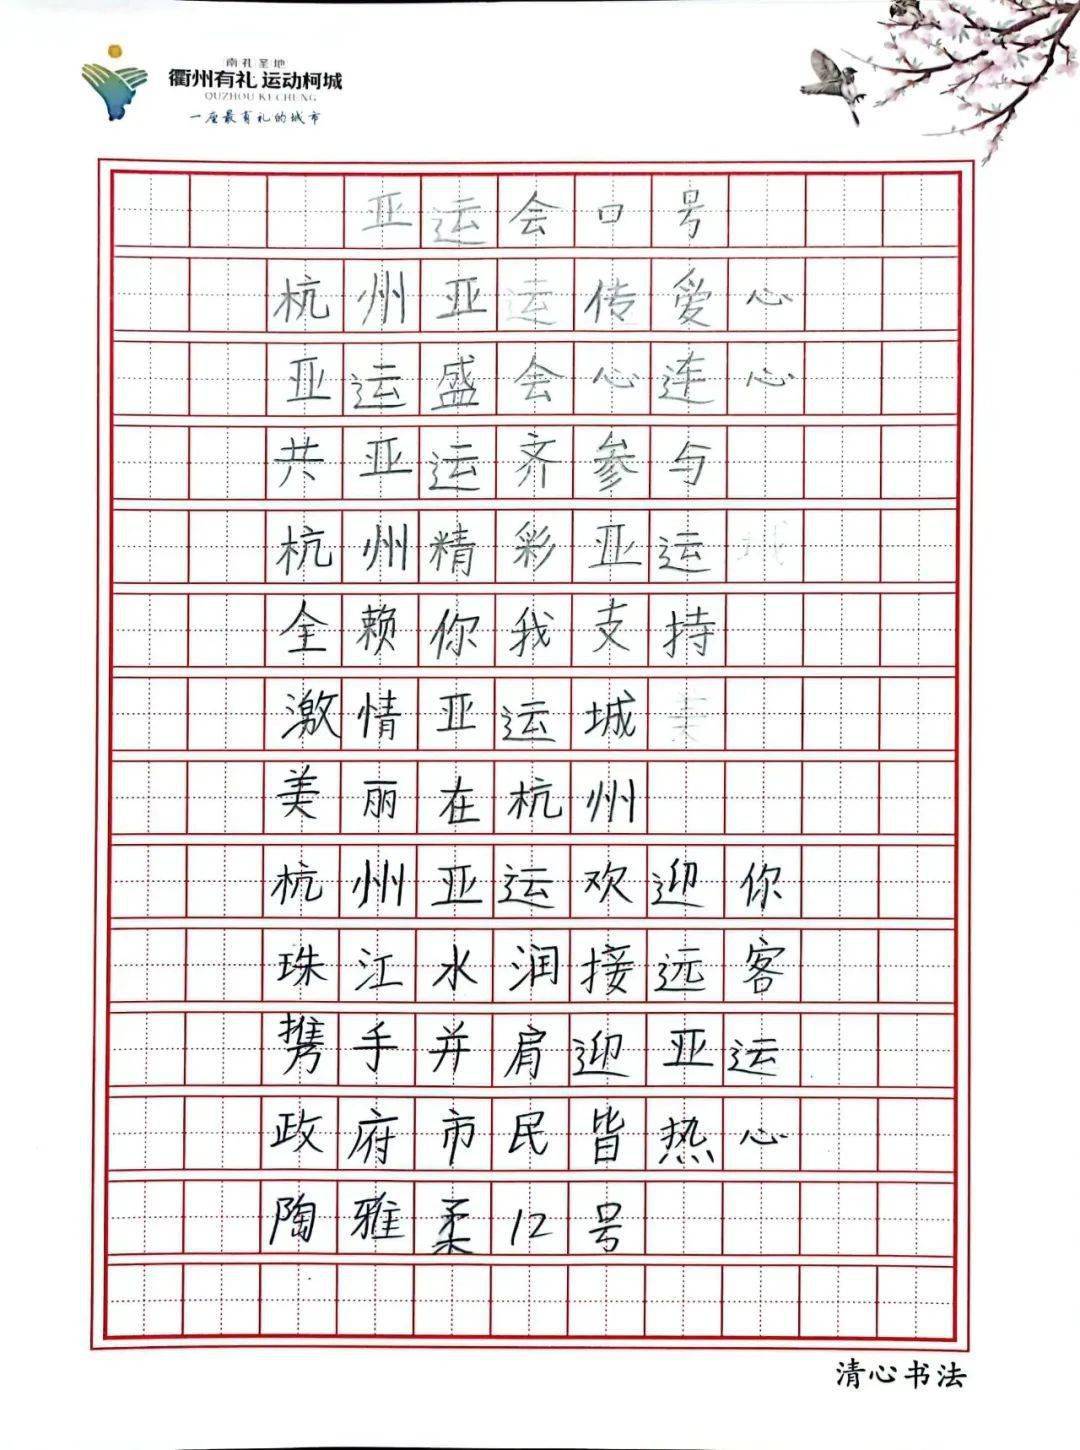 南孔圣地
衢州有礼 运动柯城
QUZHOU KECHENG
一座最有礼的城市
亚运会口号
杭州亚运传爱心
亚运盛会心连心
共亚运齐参与
杭州精彩亚运
全赖你我支持
激情亚运城
美丽在杭州
杭州亚运欢迎你
珠江水润接远客
携手并肩迎亚运
政府市民皆热心
陶雅柔12号
清心书法